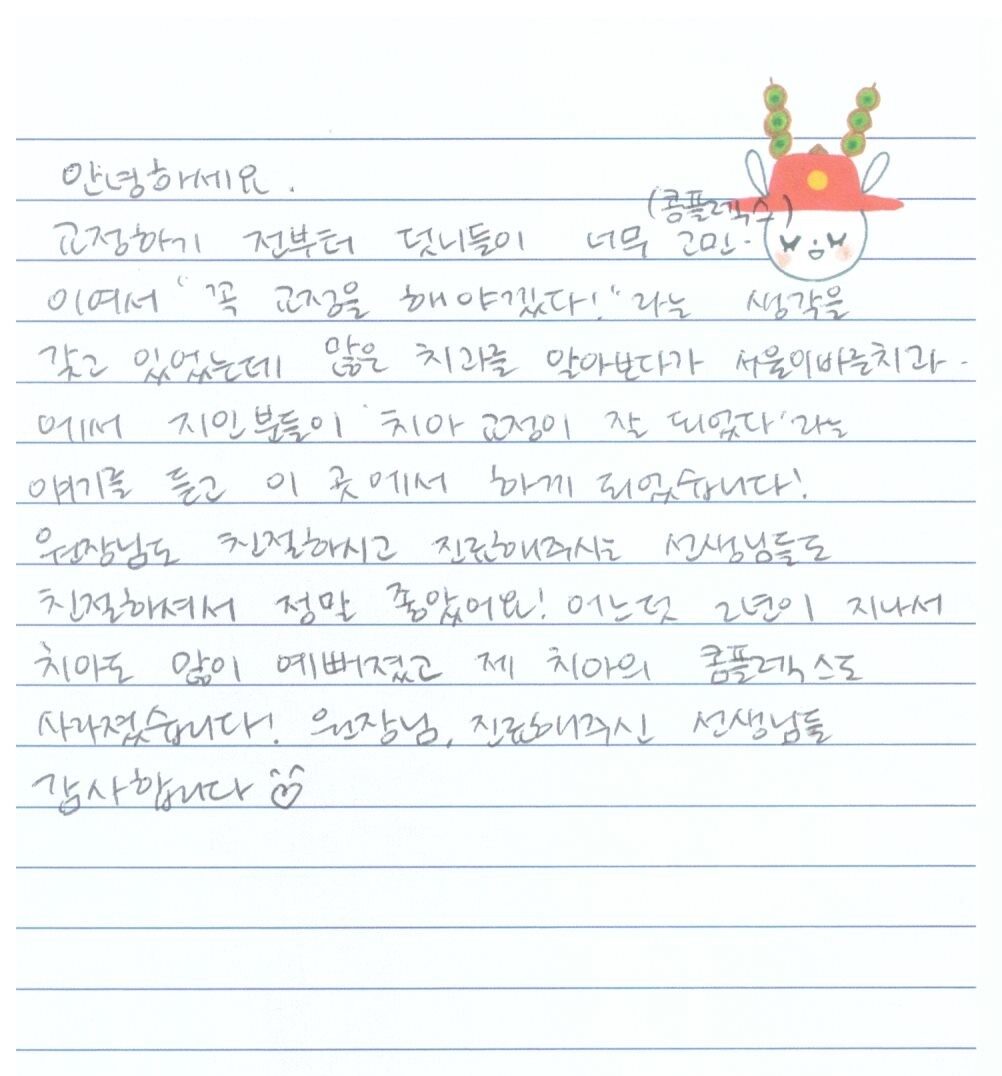 안녕하세요.
(콤플렉스)
교정하기 전부터 덧니들이 너무 고민
이여서 "꼭 교정을 해야겠다!"라는 생각을
갖고 있었는데 많은 치과를 알아보다가 서울이바른치과
에서 지인분들이 '치아 교정이 잘 되었다'라는
얘기를 듣고 이 곳에서 하게 되었습니다!
원장님도 친절하시고 진료해주시는 선생님들도
친절하셔서 정말 좋았어요! 어느덧 2년이 지나서
치아도 많이 예뻐졌고 제 치아의 콤플렉스도
사라졌습니다! 원장님, 진료해주신 선생님들
감사합니다